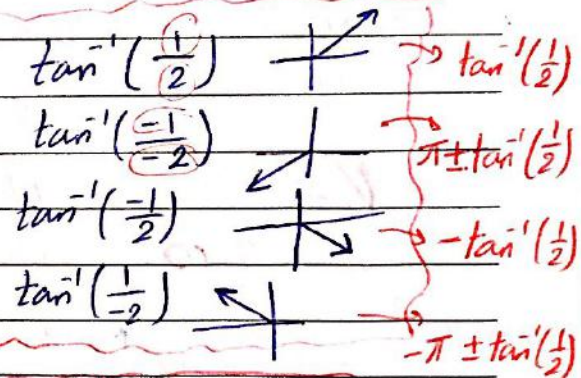 tan⁻¹(1/2) → tan⁻¹(1/2)
tan⁻¹(-1/-2) → π ± tan⁻¹(1/2)
tan⁻¹(-1/2) → -tan⁻¹(1/2)
tan⁻¹(1/-2) → -π ± tan⁻¹(1/2)